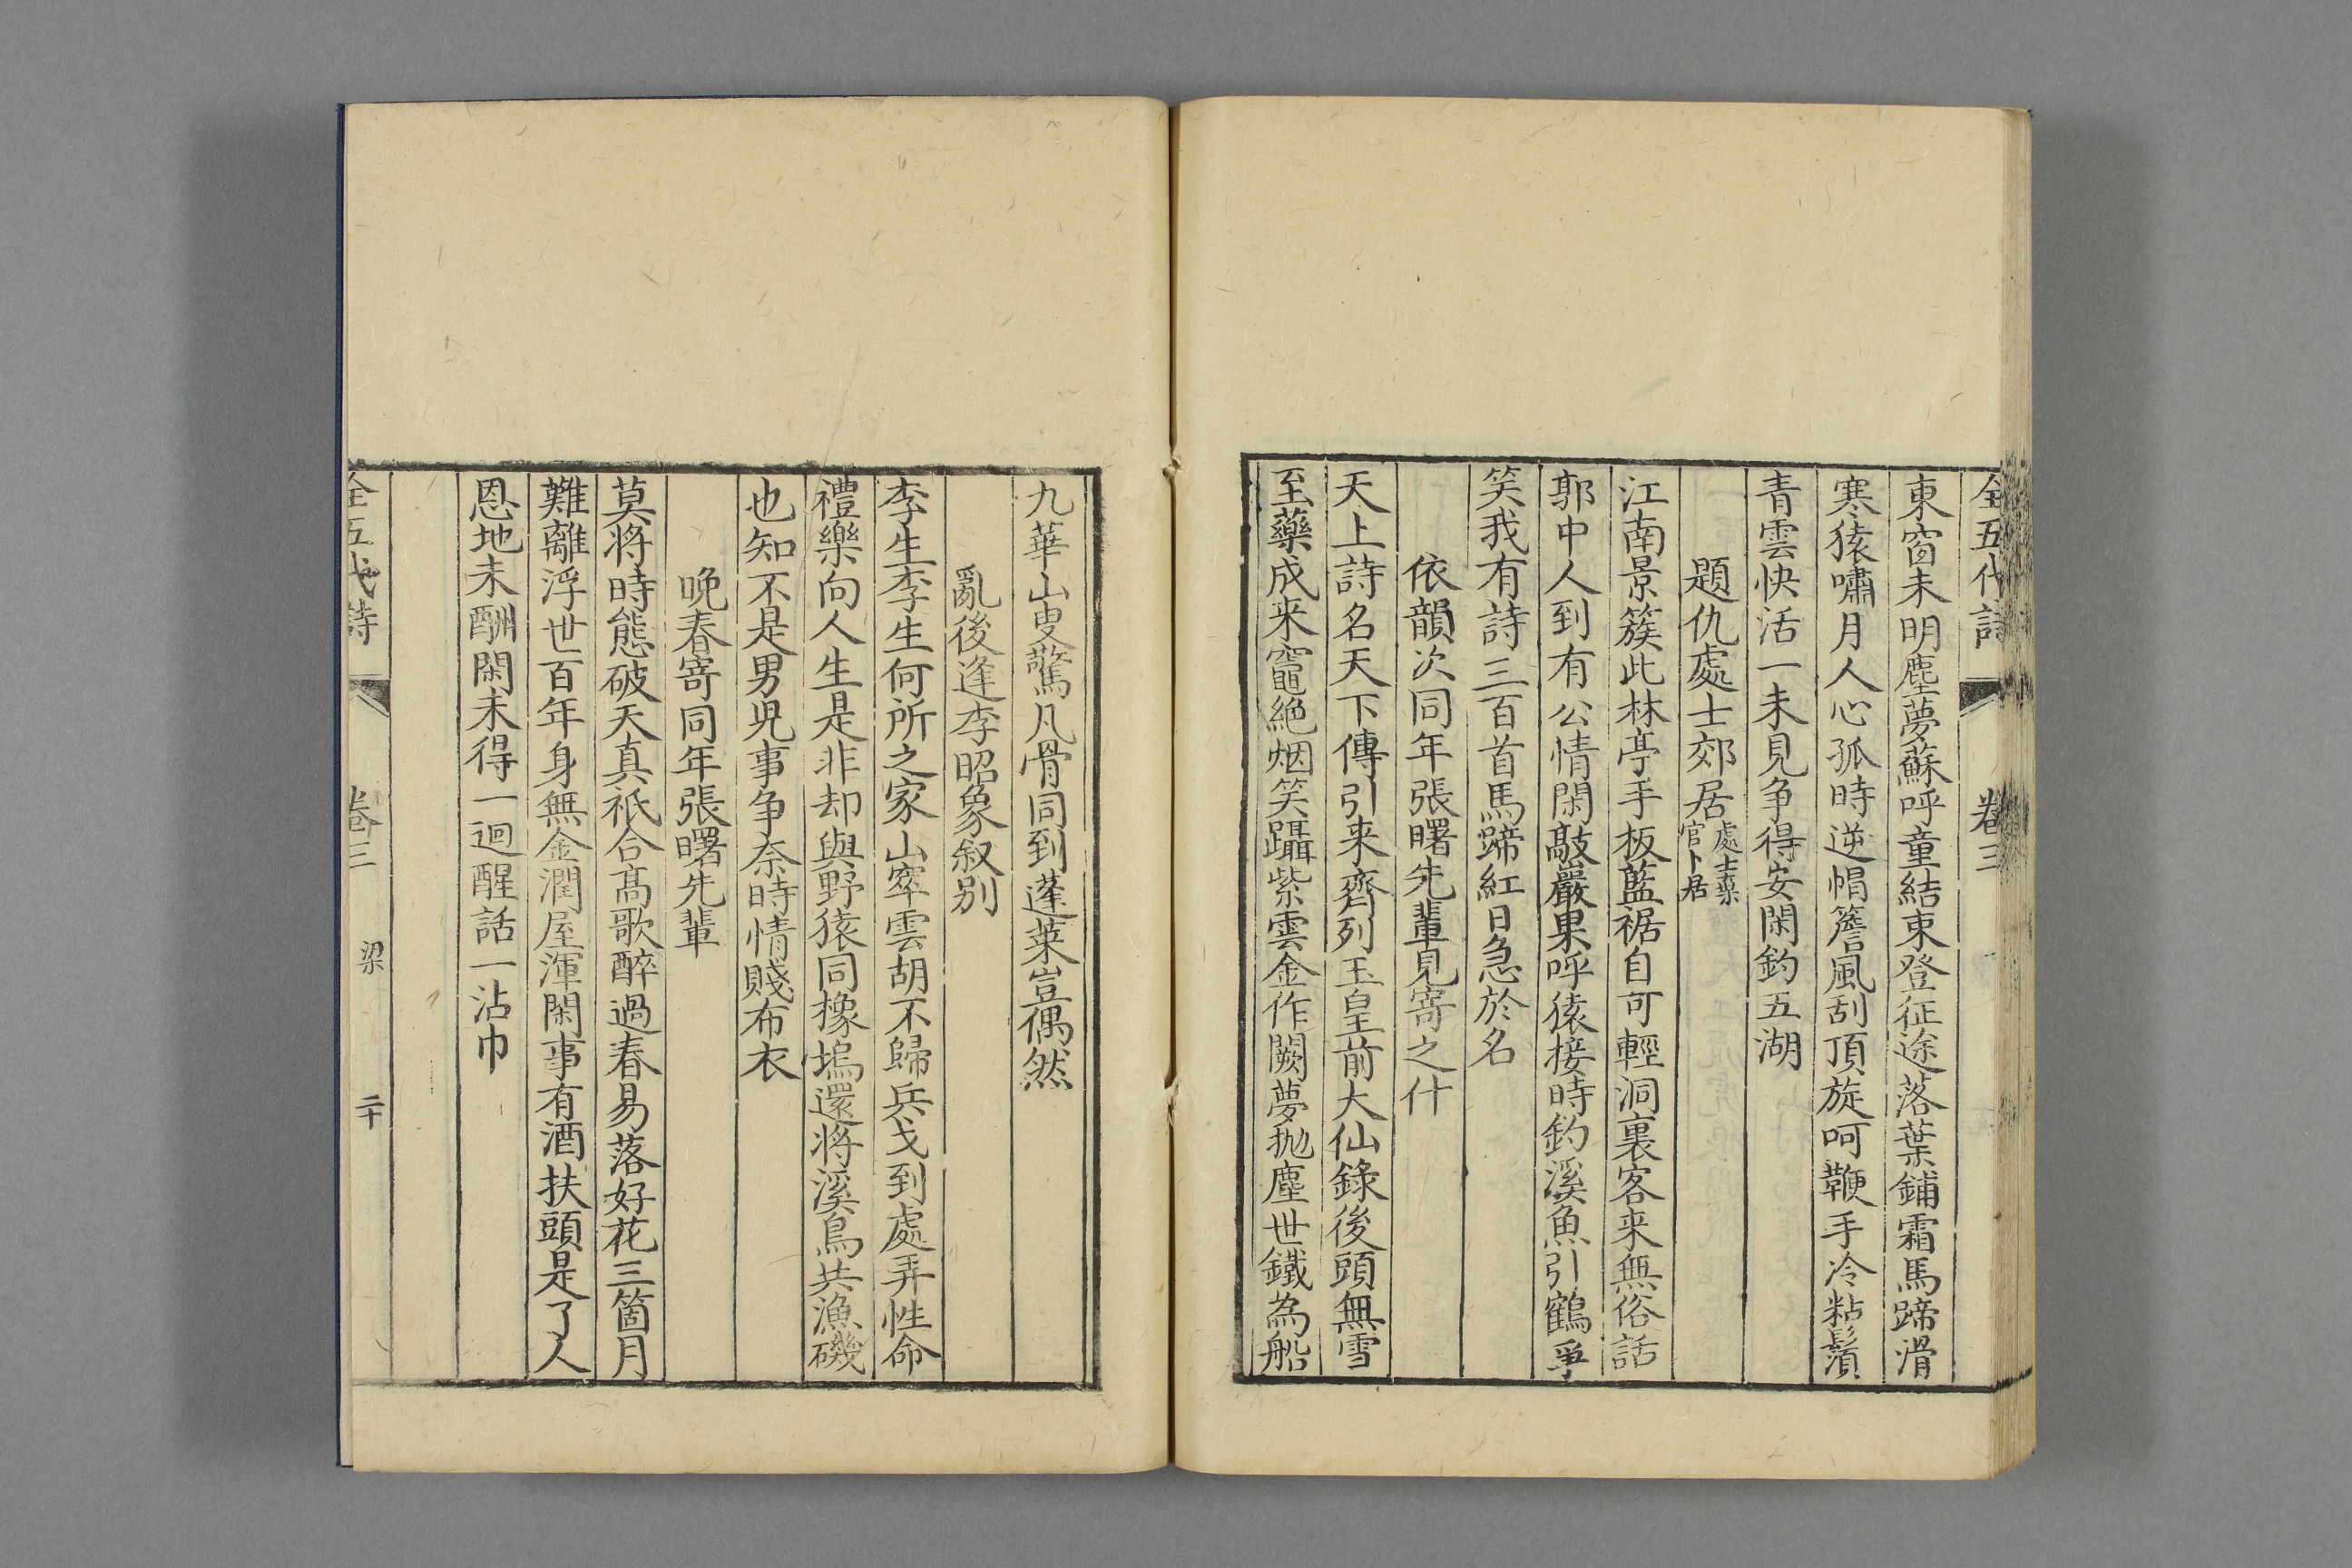 全五代詩 卷三
東窗未明塵夢蘇呼童結束登征途落葉鋪霜馬蹄滑
寒猿嘯月人心孤時逆帽簷風刮頂旋呵鞭手冷粘鬚
青雲快活一未見争得安閑釣五湖
題仇處士郊居處士棄官卜居
江南景簇此林亭手板藍裾自可輕洞裏客来無俗話
郭中人到有公情閑敲巖果呼猿接時釣溪魚引鶴爭
笑我有詩三百首馬蹄紅日急於名
依韻次同年張曙先輩見寄之什
天上詩名天下傳引来齊列玉皇前大仙錄後頭無雪
至藥成来竈絕烟笑躡紫雲金作闕夢抛塵世鐵為船
九華山叟驚凡骨同到蓬萊豈偶然
亂後逢李昭象叙别
李生李生何所之家山窣雲胡不歸兵戈到處弄性命
禮樂向人生是非却與野猿同橡塢還将溪鳥共漁磯
也知不是男兒事争奈時情賤布衣
晚春寄同年張曙先輩
莫将時態破天真衹合髙歌醉過春易落好花三箇月
難離浮世百年身無金潤屋渾閑事有酒扶頭是了人
恩地未酬閑未得一迴醒話一沾巾
全五代詩 卷三 梁 二十